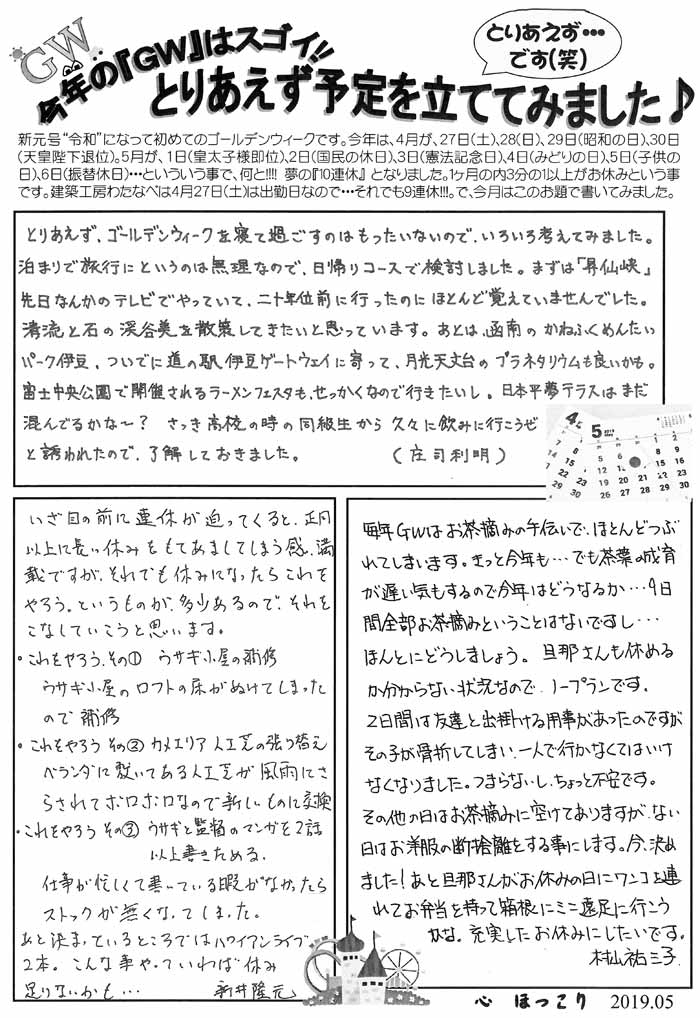 GW
今年の『GW』はスゴイ!!
とりあえず…
です(笑)
とりあえず予定を立ててみました♪
新元号“令和”になって初めてのゴールデンウィークです。今年は、4月が、27日(土)、28(日)、29日(昭和の日)、30日
(天皇陛下退位)。5月が、1日(皇太子様即位)、2日(国民の休日)、3日(憲法記念日)、4日(みどりの日)、5日(子供の
日)、6日(振替休日)…といういう事で、何と!!!! 夢の『10連休』となりました。1ヶ月の内3分の1以上がお休みという事
です。建築工房わたなべは4月27日(土)は出勤日なので…それでも9連休!!!。で、今月はこのお題で書いてみました。
とりあえず、ゴールデンウィークを寝て過ごすのはもったいないので、いろいろ考えてみました。
泊まりで旅行にというのは無理なので、日帰りコースで検討しました。まずは「昇仙峡」
先日なんかのテレビでやっていて、二十年位前に行ったのにほとんど覚えていませんでした。
清流と石の渓谷美を散策してきたいと思っています。あとは、函南のかねふくめんたい
パーク伊豆、ついでに道の駅伊豆ゲートウェイに寄って、月光天文台のプラネタリウムも良いかも。
富士中央公園で開催されるラーメンフェスタも、せっかくなので行きたいし。日本平夢テラスはまだ
混んでるかな～? さっき高校の時の同級生から久々に飲みに行こうぜ
と誘われたので、了解しておきました。 (庄司利明)
4
5
いざ目の前に連休が迫ってくると、正月
以上に長い休みをもてあましてしまう感、満
載ですが、それでも休みになったらこれを
やろう。というものが、多少あるので、それを
こなしていこうと思います。
・これをやろう、その① ウサギ小屋の補修
ウサギ小屋のロフトの床がぬけてしまった
ので補修
・これをやろう その② カメエリア人工芝の張り替え
ベランダに敷いてある人工芝が風雨にさ
らされてボロボロなので新しいものに交換
・これをやろう その③ ウサギと監督のマンガを2話
以上書きためる。
仕事が忙しくて書いている暇がなかったら
ストックが無くなってしまった。
あと決まっているところではハワイアンライブ
2本。こんな事やっていわば休み
足りないかも… 新井隆元
毎年GWはお茶摘みの手伝いで、ほとんどつぶ
れてしまいます。きっと今年も…でも茶葉の成育
が遅い気もするので今年はどうなるか…9日
間全部お茶摘みということはないですし…
ほんとにどうしましょう。旦那さんも休める
か分からない状況なので、ノープランです。
2日間は友達と出掛ける用事があったのですが
その子が骨折してしまい、一人で行かなくてはいけ
なくなりました。つまらないし、ちょっと不安です。
その他の日はお茶摘みに空けてありますが、ない
日はお洋服の断捨離をする事にします。今、決め
ました!あと旦那さんがお休みの日にワンコを連
れてお弁当を持って箱根にミニ遠足に行こう
かな。充実したお休みにしたいです。
村山祐三子
心 ほっこり 2019.05